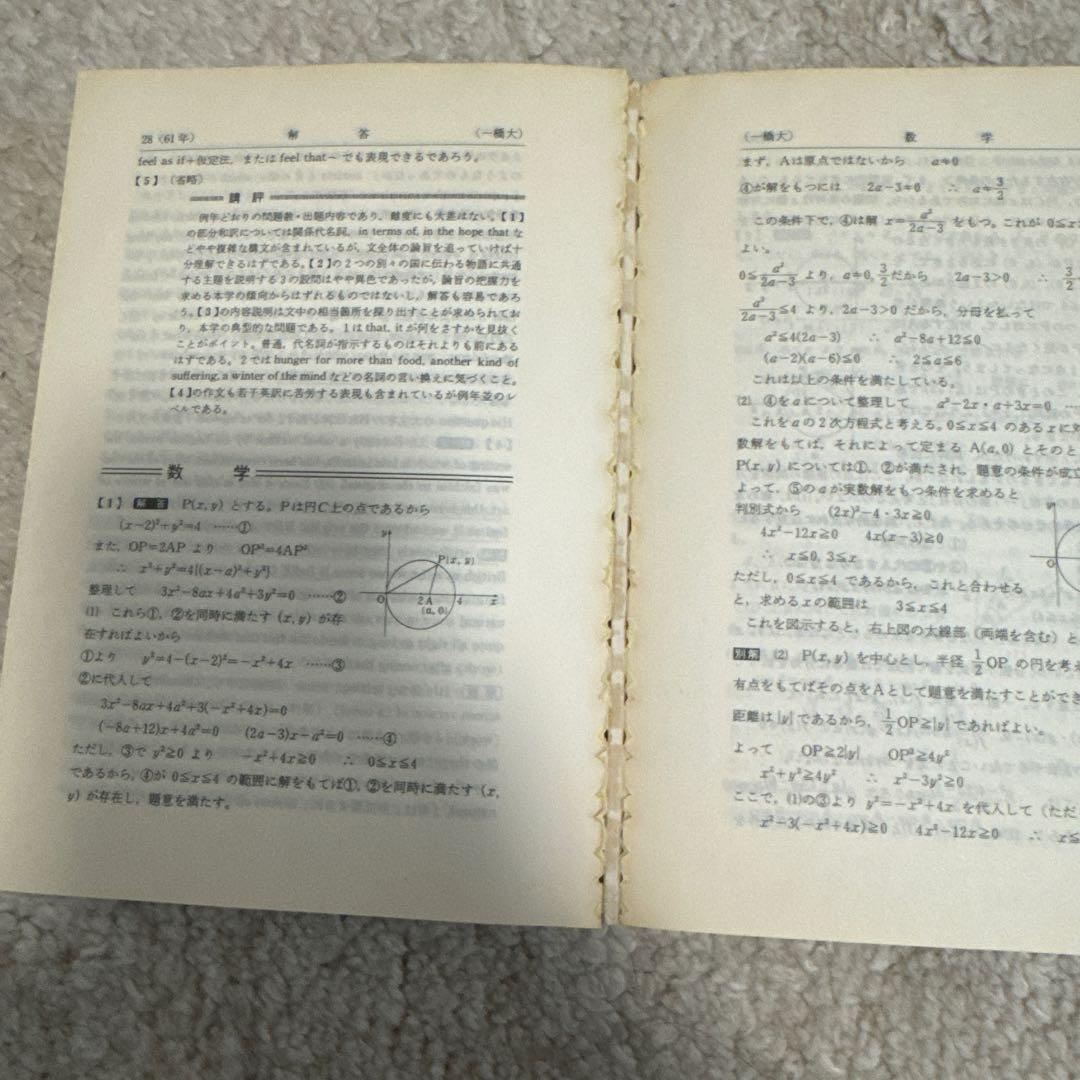 28(61年) 解 答 (一橋大)
feel as if+仮定法,またはfeel that~でも表現できるであろう。
【5】(省略)
講 評
例年どおりの問題数・出題内容であり,難度にも大差はない。【1】
の部分和訳については関係代名詞,in terms of, in the hope that な
どやや複雑な構文が含まれているが,文全体の論旨を追っていけば十
分理解できるはずである。【2】の2つの別々の国に伝わる物語に共通
する主題を説明する3の設問はやや異色であったが,論旨の把握力を
求める本学の傾向からはずれるものではないし,解答も容易であろ
う。【3】の内容説明は文中の相当箇所を探り出すことが求められてお
り,本学の典型的な問題である。1はthat, itが何をさすかを見抜く
ことがポイント。普通,代名詞が指示するものはそれよりも前にある
はずである。2ではhunger for more than food, another kind of
suffering, a winter of the mind などの名詞の言い換えに気づくこと。
【4】の作文も若干英訳に苦労する表現も含まれているが例年並のレ
ベルである。
数 学
【1】 解 答 P(x, y) とする。Pは円C上の点であるから
(x−2)²+y²=4 ……①
また,OP=2AP より OP²=4AP²
∴ x²+y²=4{(x−a)²+y²}
整理して 3x²−8ax+4a²+3y²=0 ……②
(1) これら①,②を同時に満たす (x, y) が存
在すればよいから
①より y²=4−(x−2)²=−x²+4x ……③
②に代入して
3x²−8ax+4a²+3(−x²+4x)=0
(−8a+12)x+4a²=0 (2a−3)x−a²=0 ……④
ただし,③で y²≧0 より −x²+4x≧0 ∴ 0≦x≦4
であるから,④が 0≦x≦4 の範囲に解をもてば①,②を同時に満たす (x,
y) が存在し,題意を満たす。
y
P(x, y)
O 2 A 4 x
(a, 0)
(一橋大) 数 学
まず,Aは原点ではないから a≠0
④が解をもつには 2a−3≠0 ∴ a≠3/2
この条件下で,④は解 x=a²/(2a−3) をもつ。これが 0≦x
よい。
0≦a²/(2a−3) より,a≠0, 3/2 だから 2a−3>0 ∴ 3/2
a²/(2a−3)≦4 より,2a−3>0 だから,分母を払って
a²≦4(2a−3) ∴ a²−8a+12≦0
(a−2)(a−6)≦0 ∴ 2≦a≦6
これは以上の条件を満たしている。
(2) ④をaについて整理して a²−2x・a+3x=0 …
これをaの2次方程式と考える。0≦x≦4 のあるxに対
数解をもてば,それによって定まる A(a, 0) とそのと
P(x, y) については①,②が満たされ,題意の条件が成立
よって,⑤のaが実数解をもつ条件を求めると
判別式から (2x)²−4・3x≧0
4x²−12x≧0 4x(x−3)≧0
∴ x≦0, 3≦x
ただし,0≦x≦4 であるから,これと合わせる
と,求めるxの範囲は 3≦x≦4
これを図示すると,右上図の太線部(両端を含む)と
別解 (2) P(x, y) を中心とし,半径 1/2 OP の円を考え
有点をもてばその点をAとして題意を満たすことができ
距離は|y|であるから,1/2 OP≧|y|であればよい。
よって OP≧2|y| OP²≧4y²
x²+y²≧4y² ∴ x²−3y²≧0
ここで,(1)の③より y²=−x²+4x を代入して(ただ
x²−3(−x²+4x)≧0 4x²−12x≧0 ∴ x≦
y
O